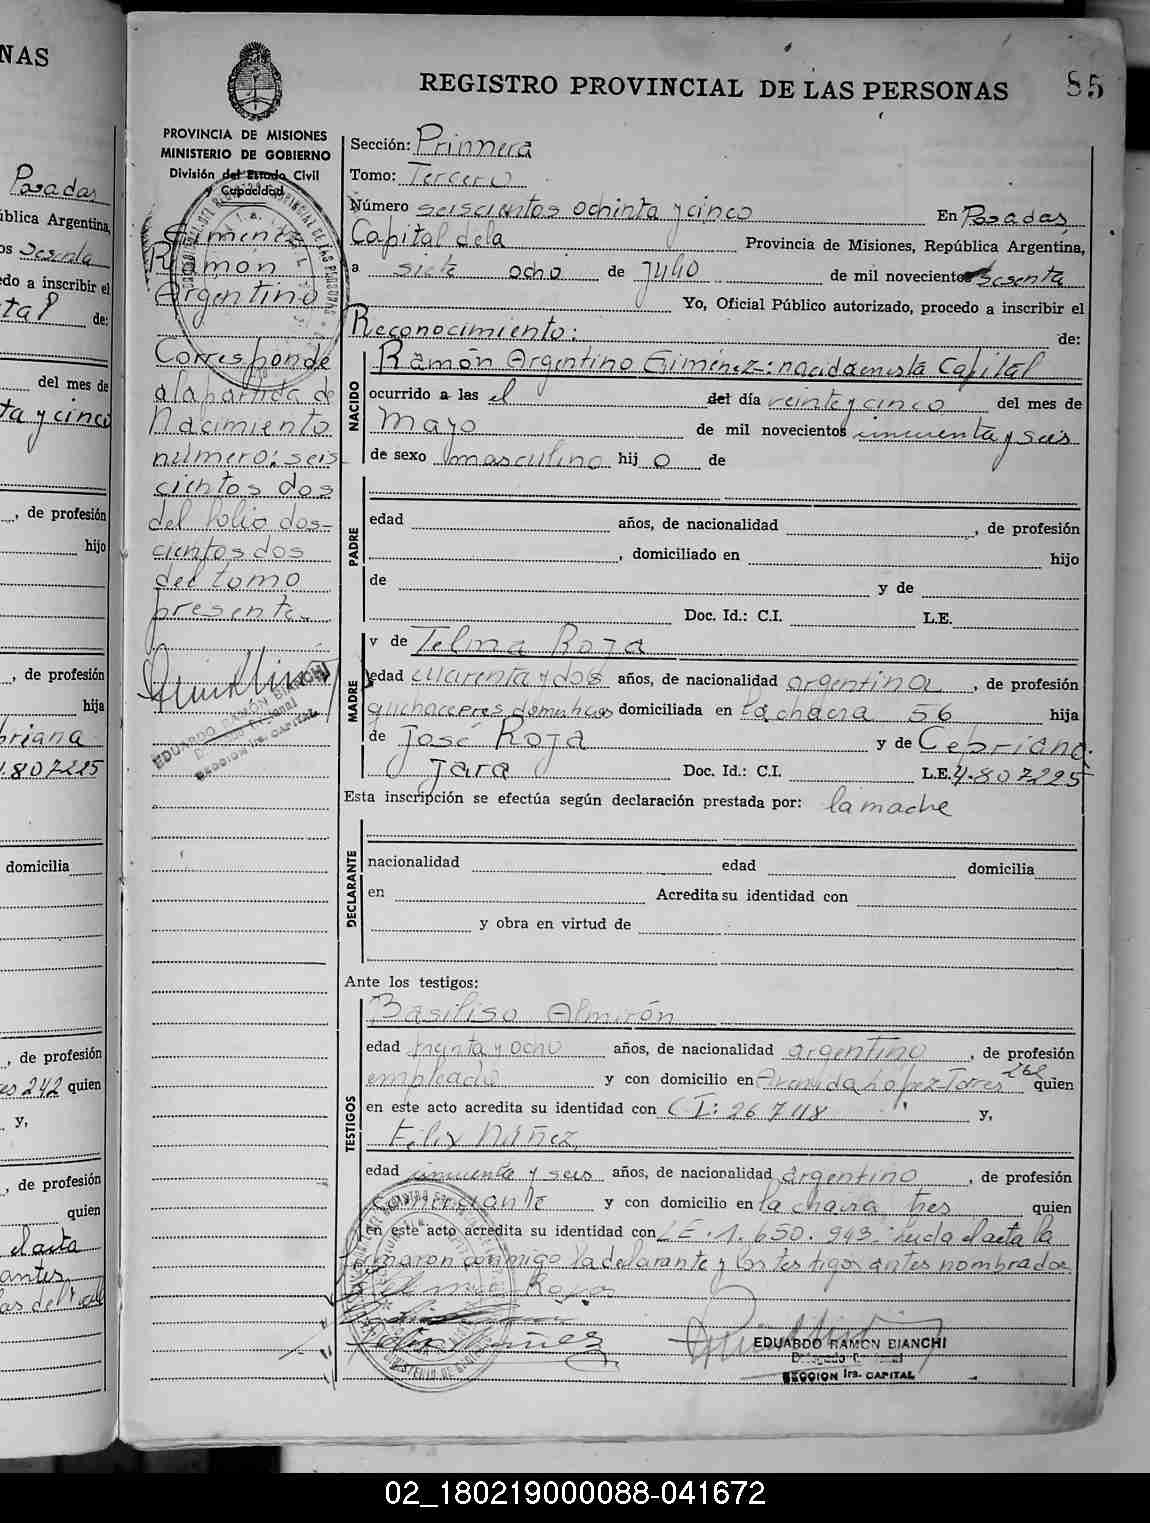 NAS
Posadas
ública Argentina,
os Sesenta
edo a inscribir el
tal de:
del mes de
ta y cinco
, de profesión
hijo
, de profesión
hija
briana
4.807225
domicilia
, de profesión
es 242 quien
y,
, de profesión
quien
el acta
antes
REGISTRO PROVINCIAL DE LAS PERSONAS 85
PROVINCIA DE MISIONES
MINISTERIO DE GOBIERNO
División del Estado Civil
Capacidad
Gimenez
Ramón
Argentino
Corresponde
a la partida de
Nacimiento
número: seis
cientos dos
del folio dos-
cientos dos
del tomo
presente.
EDUARDO RAMÓN BIANCHI
SECCION 1ra. CAPITAL
Sección: Primera
Tomo: Tercero
Número seiscientos ochinta y cinco En Posadas,
Capital de la Provincia de Misiones, República Argentina,
a siete ocho de julio de mil novecientos sesenta
Yo, Oficial Público autorizado, procedo a inscribir el
Reconocimiento: de:
NACIDO
Ramón Argentino Giménez: nacido en esta Capital
ocurrido a las el del día veinte y cinco del mes de
Mayo de mil novecientos cincuenta y seis
de sexo masculino hij o de
PADRE
edad años, de nacionalidad , de profesión
, domiciliado en hijo
de y de
Doc. Id.: C.I. L.E.
MADRE
y de Telma Roja
edad cuarenta y dos años, de nacionalidad argentina , de profesión
quehaceres domesticos domiciliada en la chacra 56 hija
de José Roja y de Cebriana
Jara Doc. Id.: C.I. L.E. 4.807225
Esta inscripción se efectúa según declaración prestada por: la madre
DECLARANTE
nacionalidad edad domicilia
en Acredita su identidad con
y obra en virtud de
Ante los testigos:
TESTIGOS
Basiliso Almirón
edad treinta y ocho años, de nacionalidad argentino , de profesión
empleado y con domicilio en Avenida López Torres 242 quien
en este acto acredita su identidad con C I: 26.748 y,
Félix Núñez
edad cincuenta y seis años, de nacionalidad argentino , de profesión
Comerciante y con domicilio en la chacra tres quien
en este acto acredita su identidad con L E. 1. 650. 943: leida el acta la
firmaron conmigo la declarante y los testigos antes nombrados
EDUARDO RAMON BIANCHI
SECCION 1ra. CAPITAL
02_180219000088-041672